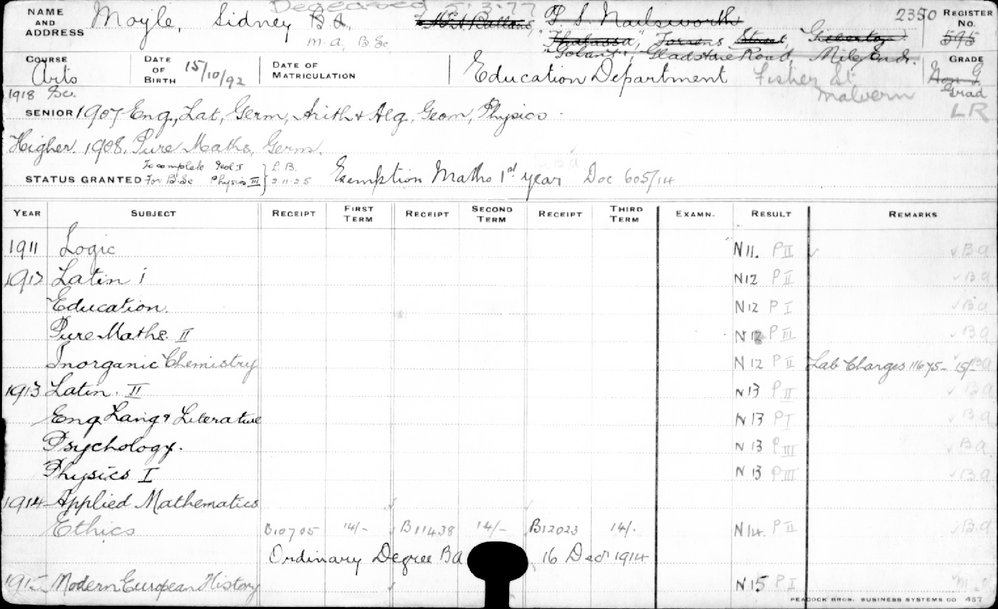 Deceased 5.3.77
NAME AND ADDRESS Moyle, Sidney B A P. S. Nailsworth 2350 REGISTER No. 595
M.A, B Sc "Thalassa", Torrens Street, Glenelg
Gladstone Road, Mile End.
COURSE Arts DATE OF BIRTH 15/10/92 DATE OF MATRICULATION Education Department Fisher St Malvern GRADE Grad
1918 Sc. LR
SENIOR 1907 Eng, Lat, Germ, Arith & Alg, Geom, Physics
Higher 1908. Pure Maths, Germ.
STATUS GRANTED To complete For B Sc Geol I Physics III } L.B. 2.11.25 Exemption Maths 1st year Doc 605/14
YEAR SUBJECT RECEIPT FIRST TERM RECEIPT SECOND TERM RECEIPT THIRD TERM EXAMN. RESULT REMARKS
1911 Logic N 11. P II ✓ ✓ B a
1912 Latin i N 12 P II ✓ B a
Education. N 12 P I ✓ B a
Pure Maths. II N 12 P III ✓ B a
Inorganic Chemistry N 12 P II Lab Charges 11675 - 15/- B a
1913 Latin. II N 13 P II ✓ B a
Eng Lang & Literature N 13 P I ✓ B a
Psychology. N 13 P III ✓ B a
Physics I N 13 P III ✓ B a
1914 Applied Mathematics
Ethics B10705 14/- B11438 14/- B12023 14/- N 14 P II ✓ B a
Ordinary Degree BA 16 Dec 1914
1915 Modern European History N 15 P I
PEACOCK BROS. BUSINESS SYSTEMS CO 457